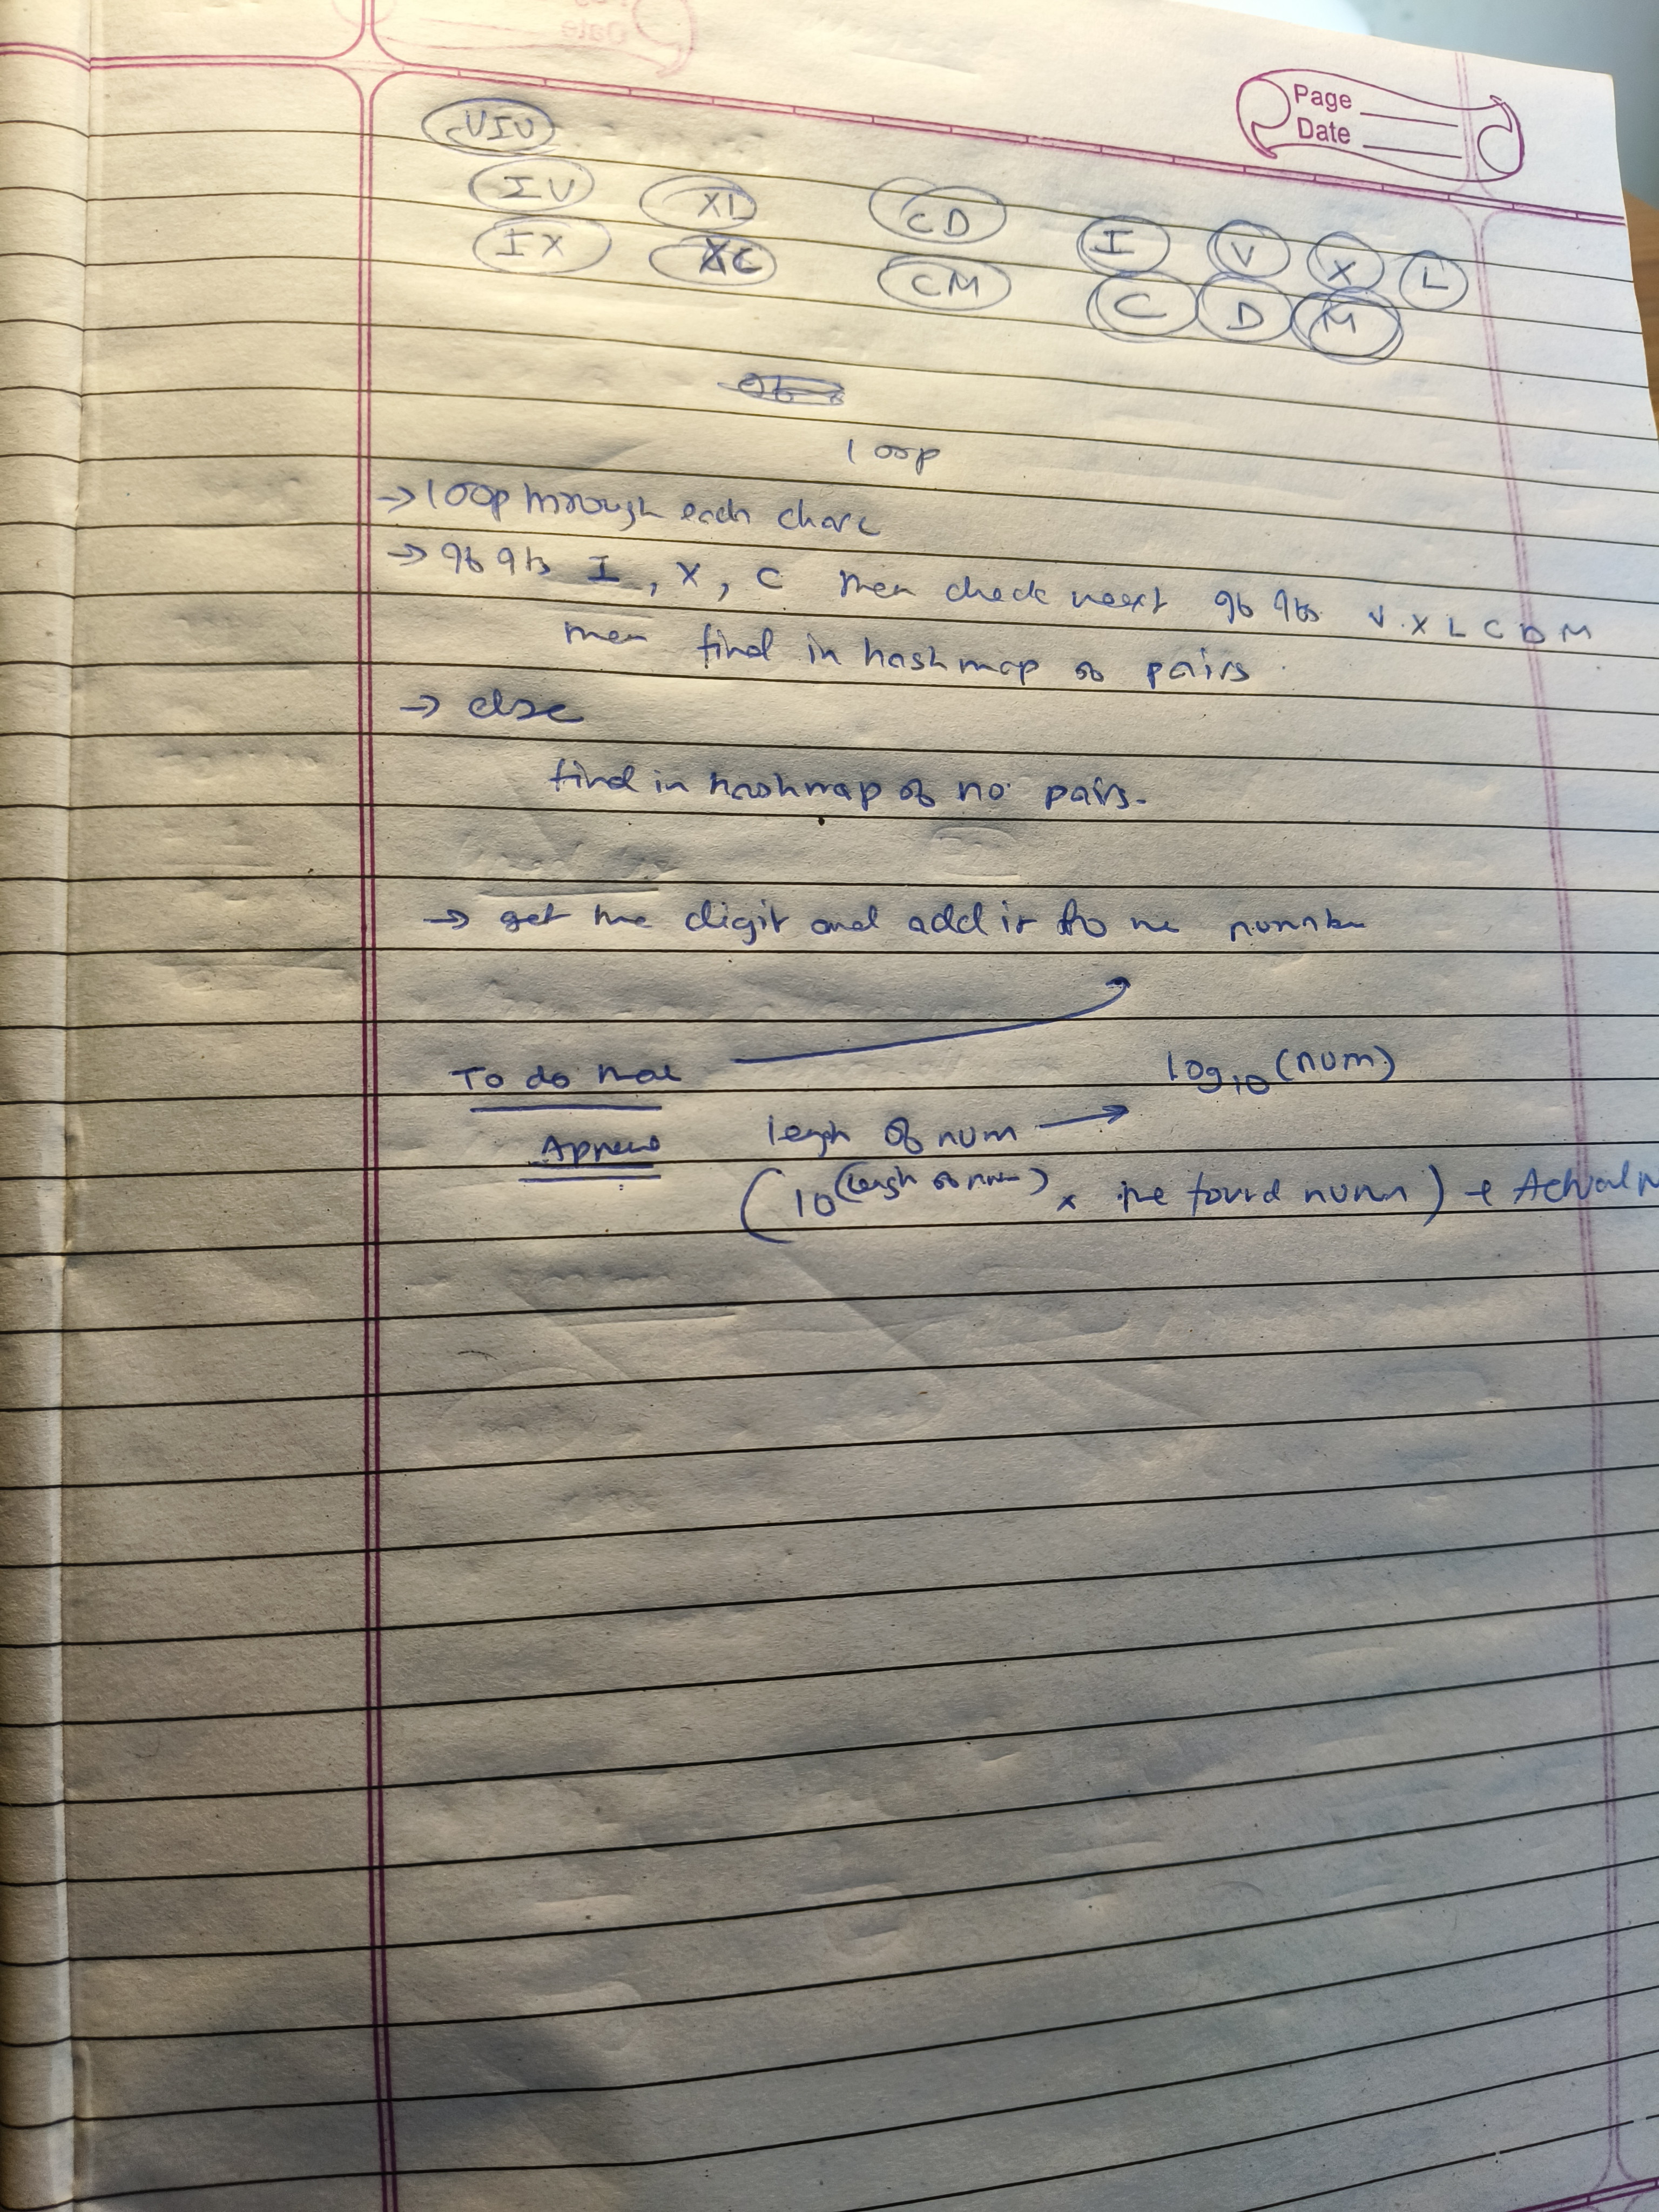 Page
Date
VIV
IV XL CD I V X L
IX XC CM C D M
loop
→ loop through each char
→ If its I, X, C then check next If its V. X L C D M
then find in hashmap of pairs.
→ else
find in hashmap of no pairs.
→ get the digit and add it to the number
To do that
log10 (num)
length of num →
(10^(length of num) × the found num) + Actual